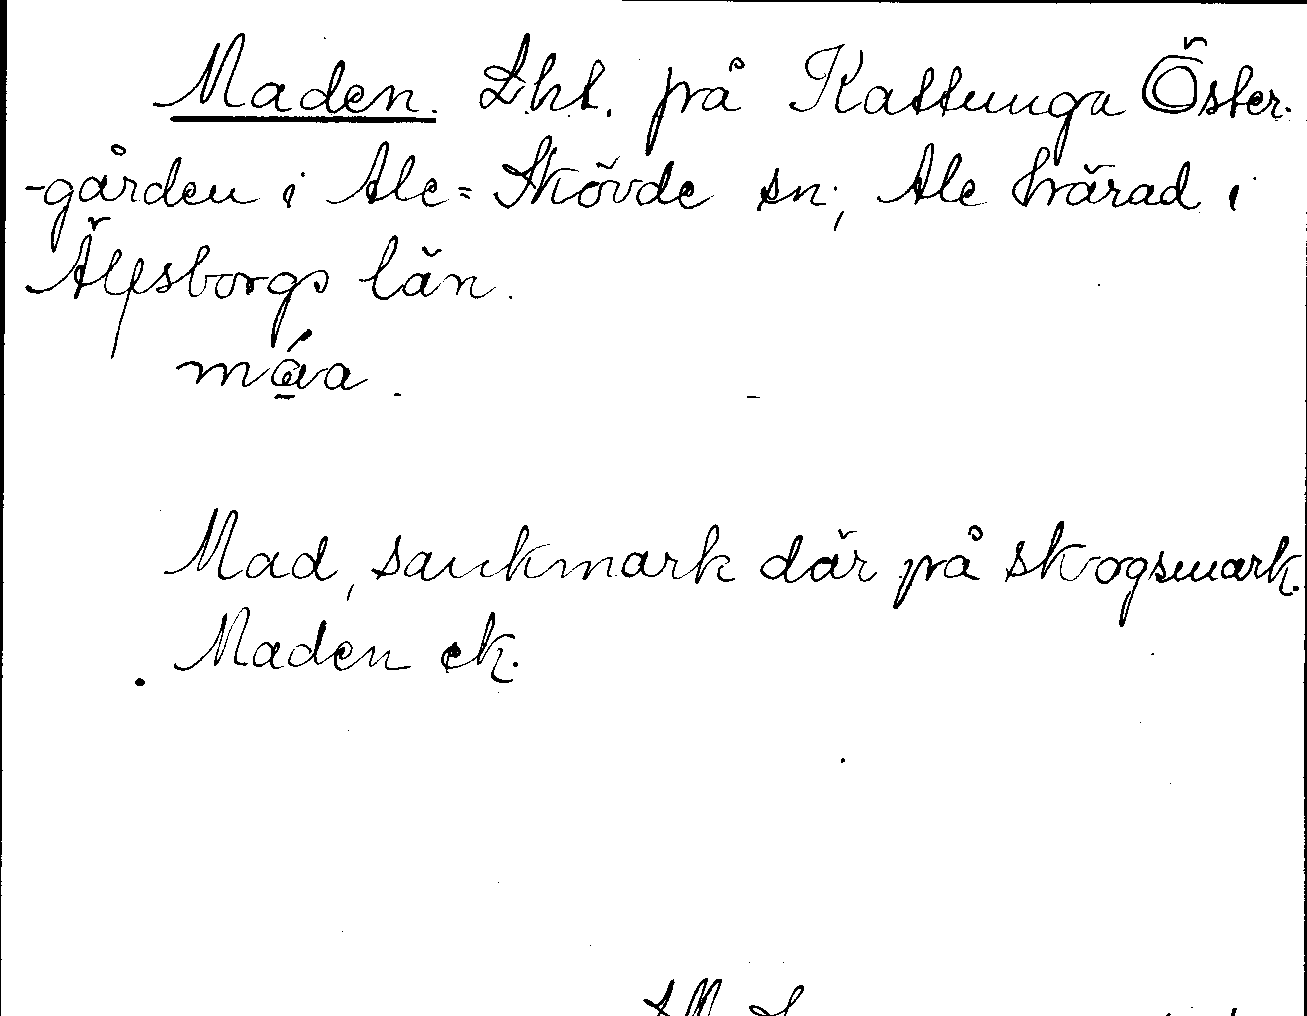 Maden. Lht. på Kattunga Öster-
-gården i Ale=Skövde sn; Ale härad i
Älfsborgs län.
máa.
Mad, sankmark där på skogsmark.
Maden ek.